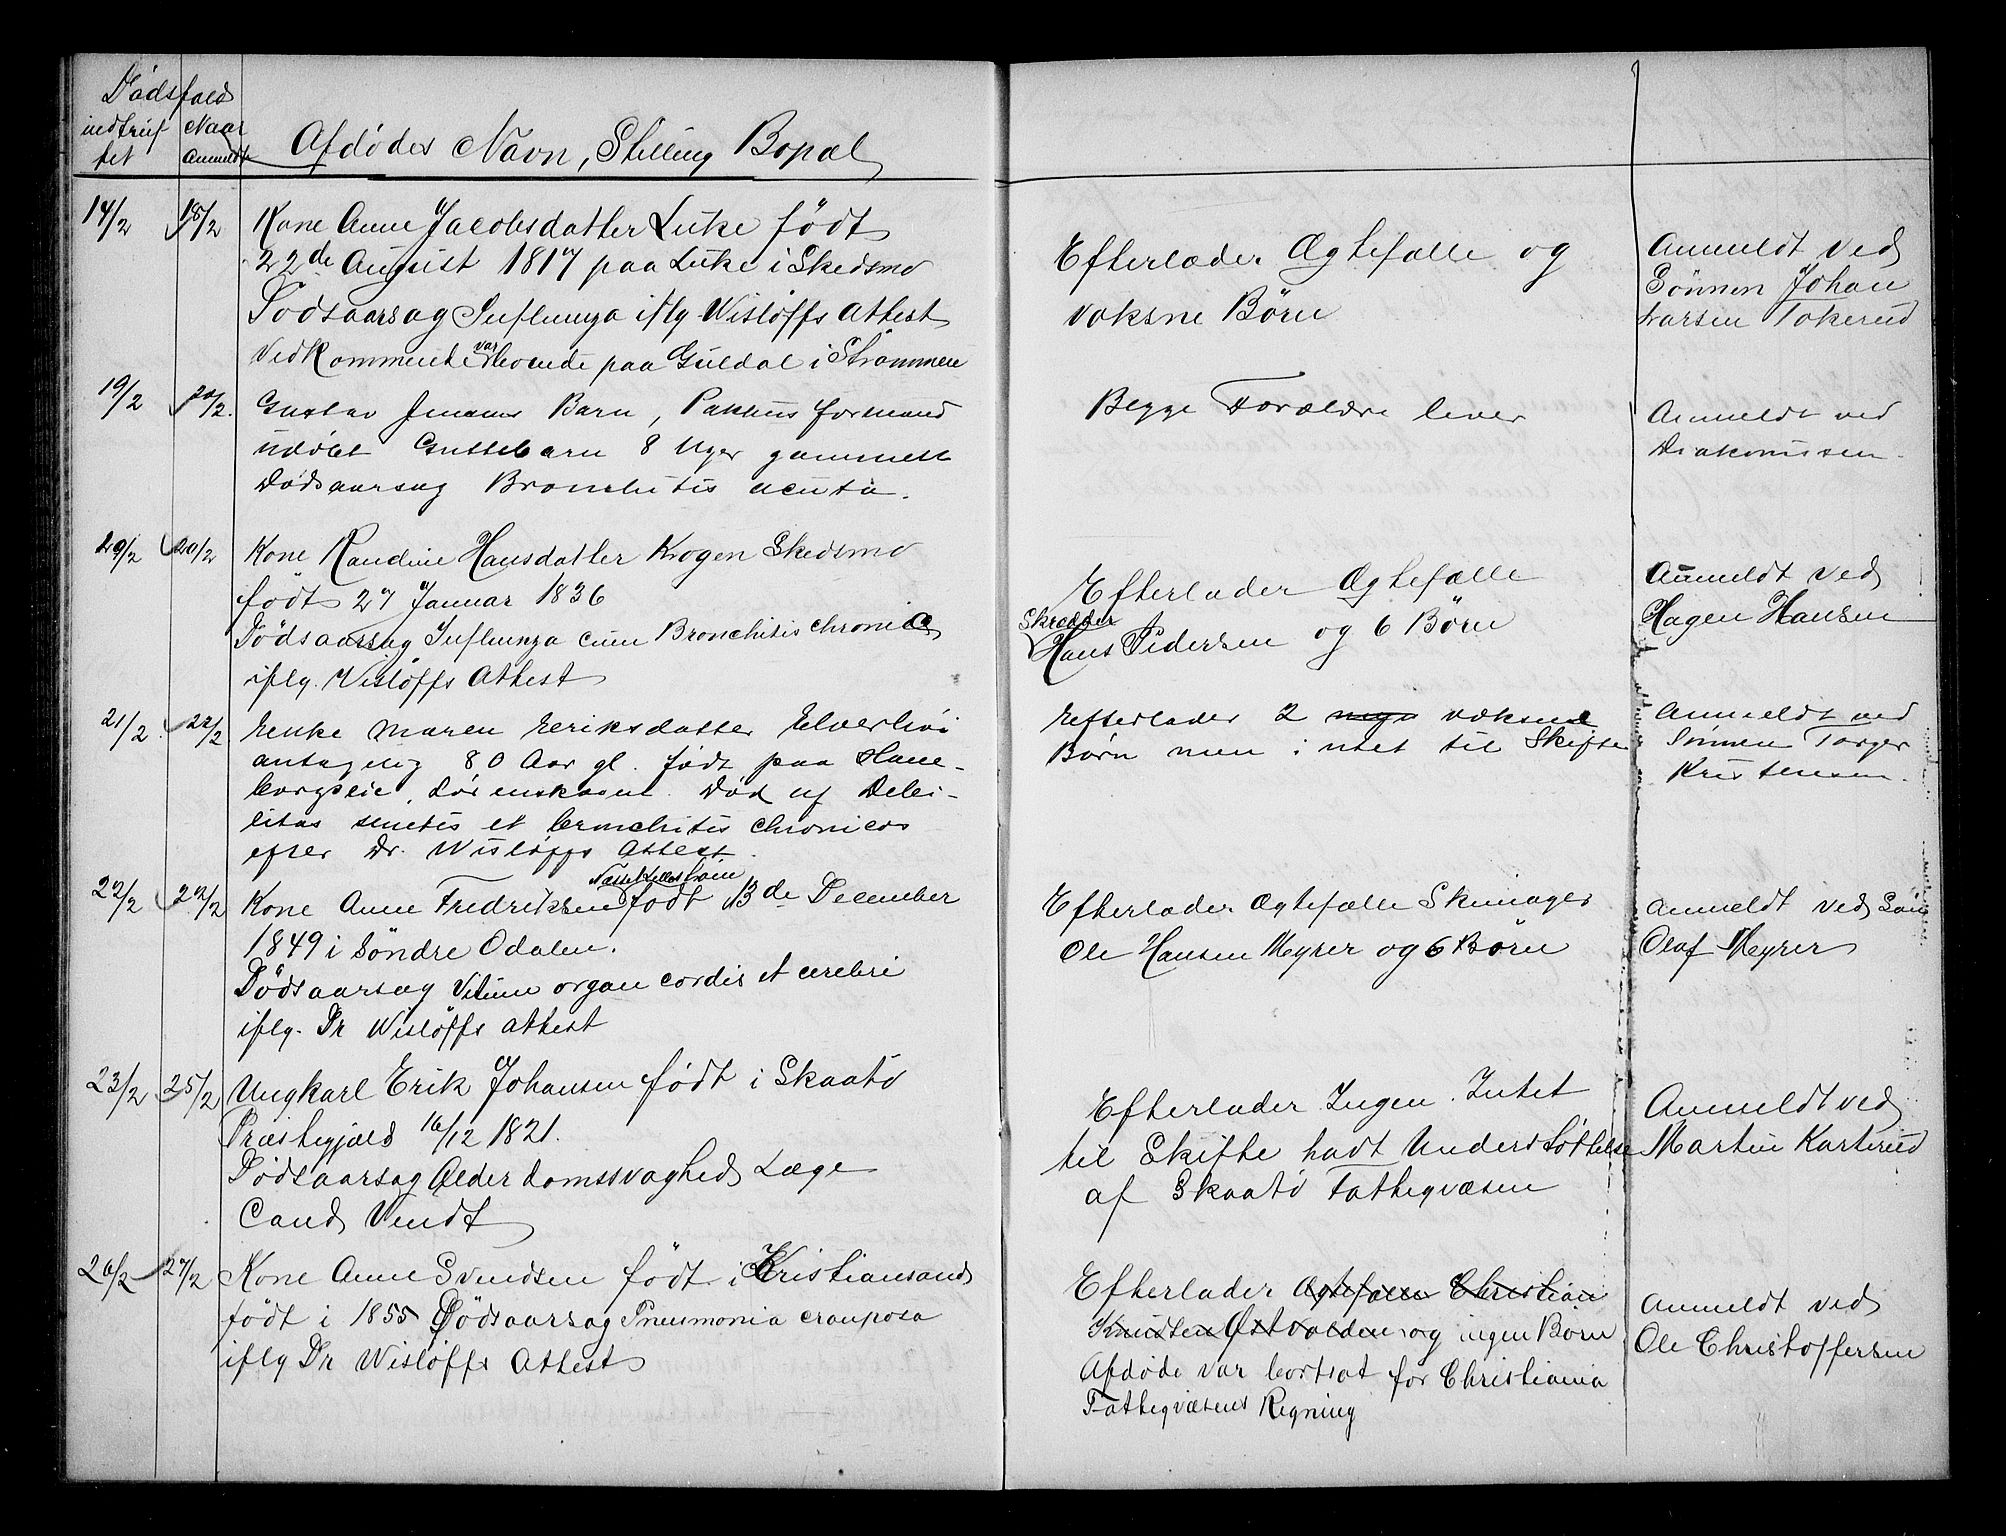 Dødsfald
indtruf Naar
fet Anmeldt Afdødes Navn, Stilling Bopæl
14/2 18/2 Kone Anne Jacobsdatter Luke født
22de August 1817 paa Luke i Skedsmo
Dødsaarsag Influenza iflg Wisløffs Attest
Vedkommende var boende paa Guldal i Strømmen
Efterlader Ægtefælle og
voksne Børn
Anmeldt ved
Sønnen Johan
Larsen Tokerud
19/2 20/2. Gustav Jensens Barn, Pakhus formand
udøbt Guttebarn 8 Uger gammelt
Dødsaarsag Bronchitis acuta.
Begge Forældre lever
Anmeldt ved
Diakonissen.
20/2 20/2 Kone Randine Hansdatter Krogen Skedsmo
født 27 Januar 1836
Dødsaarsag Influenza cum Bronchitis chronica
iflg. Wisløffs Attest
Efterlader Ægtefælle
Skrædder
Hans Pedersen og 6 Børn
Anmeldt ved
Hagen Hansen
21/2. 22/2 Enke Maren Eeriksdatter Elverhøi
antagelig 80 Aar gl. født paa Hane-
borgseie, Lørenskoven. Død af Debi-
litas senilis et bronchitis chronicos
efter Dr. Wisløffs Attest.
Efterlader 2 voksne
Børn men intet til Skifte
Anmeldt ved
Sønnen Torger
Kristensen.
22/2 22/2 Kone Anne Fredriksen født 13de December
1849 i Søndre Odalen.
Dødsaarsag Vitium organ cordis et cerebri
iflg. Dr Wisløffs Attest
Efterlader Ægtefælle Skomager
Ole Hansen Meyrer og 6 Børn
Anmeldt ved Søn
Olaf Meyrer
23/2 25/2 Ungkarl Erik Johansen født i Skaatø
Præstegjæld 16/12 1821.
Dødsaarsag Alderdomssvaghed Læge
Cand Vendt
Efterlader Ingen. Intet
til Skifte hadt Understøttelse
af Skaatø Fattigvæsen
Anmeldt ved
Martin Karterud
26/2 27/2 Kone Anne Svendsen født i Kristiansand
født i 1855 Dødsaarsag Pneumonia crouposa
iflg Dr Wisløffs Attest
Efterlader Ægtefælle Christian
Knudsen Østvolden og ingen Børn
Afdøde var bortsat for Christiania
Fattigvæsens Regning
Anmeldt ved
Ole Christoffersen